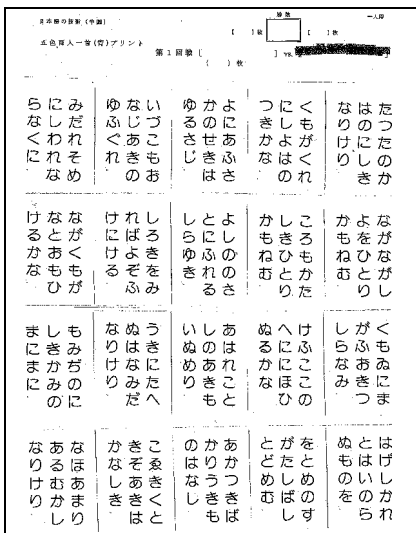 勝敗
一人用
〔　〕枚 〔　〕枚
五色百人一首(青)プリント
第1回戦〔　　〕vs.〔　　〕
（　）枚
たつたのか
はのにしき
なりけり
くもがくれ
にしよはの
つきかな
よにあふさ
かのせきは
ゆるさじ
いづこもお
なじあきの
ゆふぐれ
みだれそめ
にしわれな
らなくに
ながながし
よをひとり
かもねむ
ころもかた
しきひとり
かもねむ
よしののさ
とにふれる
しらゆき
しろきをみ
ればよぞふ
けにける
ながくもが
なとおもひ
けるかな
くもゐにま
がふおきつ
しらなみ
けふここの
へににほひ
ぬるかな
あはれこと
しのあきも
いぬめり
うきにたへ
ぬはなみだ
なりけり
もみぢのに
しきかみの
まにまに
はげしかれ
とはいのら
ぬものを
をとめのす
がたしばし
とどめむ
あかつきば
かりうきも
のはなし
こゑきくと
きぞあきは
かなしき
なほあまり
あるむかし
なりけり